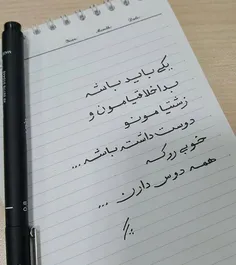 یکی باید باشه
بداخلاقیامون و
زشتیامونو
دوست داشته باشه ...
خوبی رو که
همه دوس دارن ...